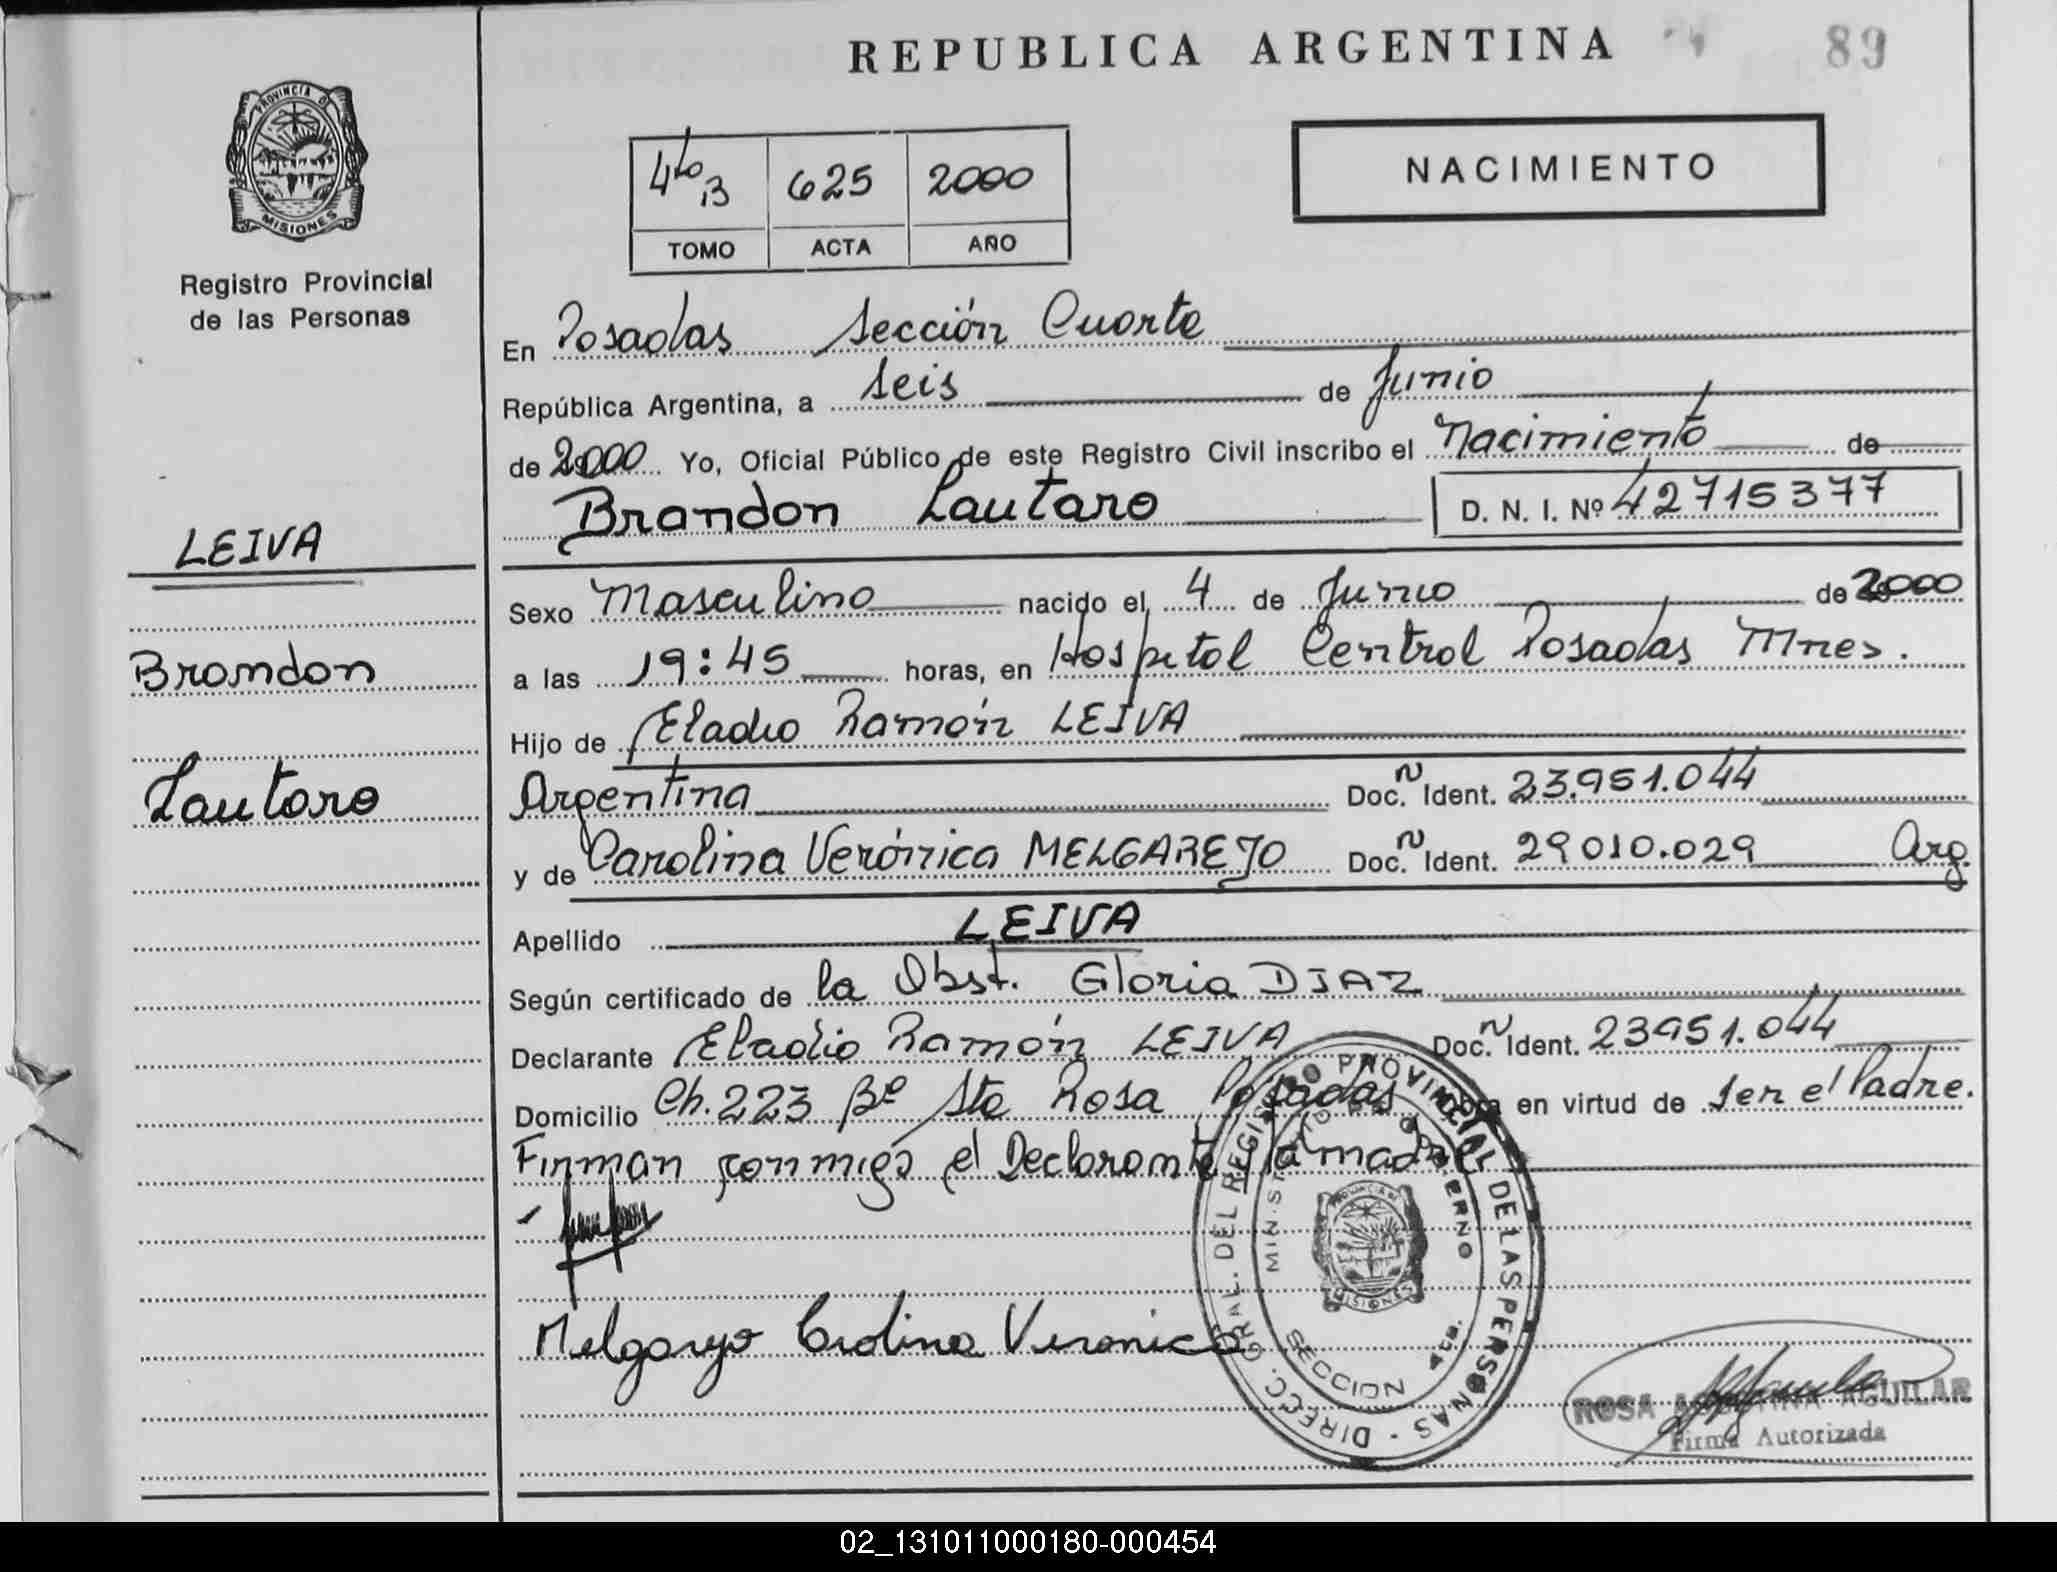 REPUBLICA ARGENTINA
89
PROVINCIA DE
MISIONES
Registro Provincial
de las Personas
4to B 625 2000
TOMO ACTA AÑO
NACIMIENTO
En Posadas Sección Cuarta
República Argentina, a seis de Junio
de 2000 Yo, Oficial Público de este Registro Civil inscribo el Nacimiento de
Brandon Lautaro D. N. I. Nº 42715377
LEIVA
Brandon
Lautaro
Sexo Masculino nacido el 4 de Junio de 2000
a las 19:45 horas, en Hospital Central Posadas Mnes.
Hijo de Eladio Ramón LEIVA
Argentina Doc. Ñ Ident. 23.951.044
y de Carolina Verónica MELGAREJO Doc. Ñ Ident. 29010.029 Arg.
Apellido LEIVA
Según certificado de la Obst. Gloria DIAZ
Declarante Eladio Ramón LEIVA Doc. Ñ Ident. 23951.044
Domicilio Ch. 223 Bº Sta Rosa Posadas en virtud de ser el Padre.
Firman conmigo el Declarante y la madre
Melgarejo Carolina Veronica
DIRECC. GRAL. DEL REGISTRO PROVINCIAL DE LAS PERSONAS
MINISTERIO DE GOBIERNO
PROVINCIA DE
MISIONES
SECCION 4ta.
ROSA ARGENTINA AGUILAR
Firma Autorizada
02_131011000180-000454